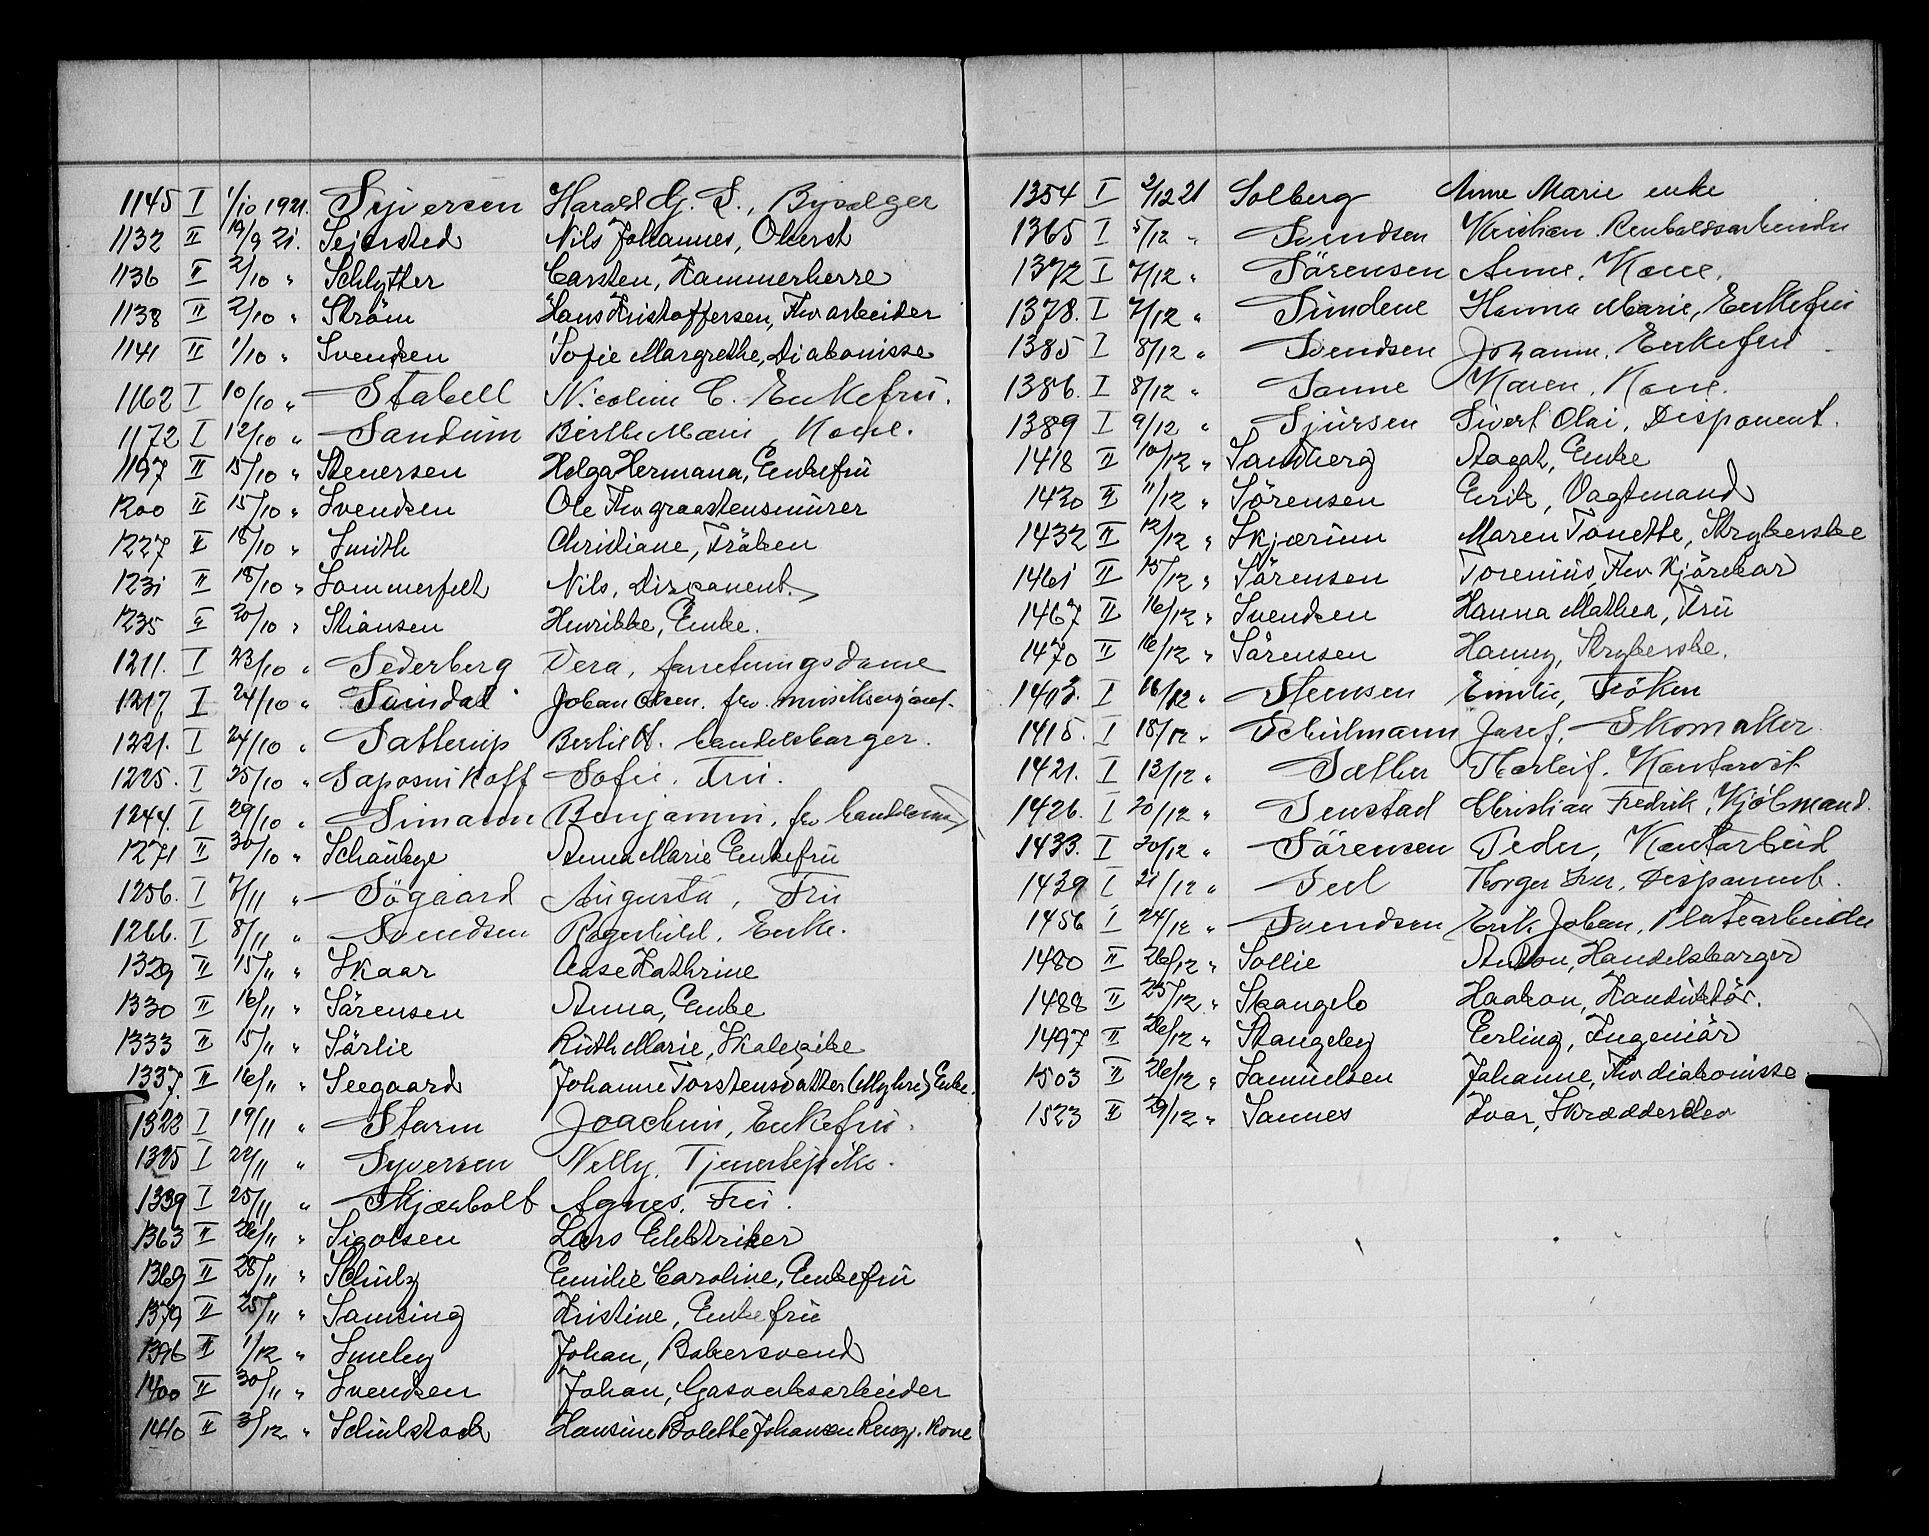 1145 I 1/10 1921. Syversen Harald G. S., Bysælger
1132 II 19/9 21. Sejersted Nils Johannes, Oberst
1136 II 2/10 " Schlytter Carsten, Kammerherre
1138 II 2/10 " Ström Hans Kristoffersen, Fhv arbeider
1141 II 1/10 " Svendsen Sofie Margrethe, Diakonisse
1162 I 10/10 " Stabell Nicoline C. Enkefru.
1172 I 12/10 " Sandum Berthe Marie, Kone.
1197 II 15/10 " Stenersen Helga Hermana, Enkefru
1200 II 15/10 " Svendsen Ole Fhv graastensmurer
1227 II 18/10 " Smith Christiane, Fröken
1231 II 18/10 " Sommerfelt Nils, Disponent.
1235 II 20/10 " Stiansen Henrikke, Enke.
1211. I 23/10 " Sederberg Vera, forretningsdame
1217 I 24/10 " Sundal Johan Olsen. fhv. musiksersjant.
1221. I 24/10 " Satterup Bertil H. handelsborger.
1225. I 25/10 " Saposnikoff Sofie. Fru.
1244. I 29/10 " Simann Benjamin, fhv handelsm
1271 II 30/10 " Schaubye Anna Marie Enkefru
1256. I 7/11 " Søgaard Augusta, Fru
1266. I 8/11 " Svendsen Ragnhild. Enke.
1329 II 15/11 " Skaar Aase Kathrine
1330 II 16/11 " Sörensen Anna, Enke
1333 II 15/11 " Sörlie Ruth Marie, Skolepike
1337. II 16/11 " Seegaard Johanne Torstensdatter (Myhre) Enke.
1322 I 19/11 " Storm Joachim, Enkefru.
1325 I 22/11 " Syversen Nelly, Tjenestepike.
1339 I 25/11 " Skjærholt Agnes. Fru.
1363 II 26/11 " Sigolsen Lars Elektriker
1369 II 28/11 " Schulz Emilie Caroline, Enkefru
1379 II 25/11 " Samsing Kristine, Enkefru
1396 II 1/12 " Smeby Johan, Bakersvend
1400 II 30/11 " Svendsen Johan, Gasverksarbeider
1410 II 3/12 " Schulstock Hansine Bolette Johansen Rengj. kone
1354 I 2/12 21 Solberg Anne Marie enke
1365 I 5/12 " Svendsen Kristian. Renholdsarbeider
1372 I 7/12 " Sörensen Anne. Kone.
1378. I 7/12 " Sundene Hanna Marie, Enkefru
1385 I 8/12 " Svendsen Johanne. Enkefru
1386. I 8/12 " Sonne Karen. Kone.
1389 I 9/12 " Sjursen Sivert Olai, Disponent.
1418 II 10/12 " Sandberg Aagot, Enke
1420 II 11/12 " Sørensen Erik, Vagtmand
1432 II 12/12 " Skjærum Maren Tonette, Strykerske
1461 II 15/12 " Sörensen Torenius, Fhv Kjörekar
1467 II 16/12 " Svendsen Hanna Mathea, Fru
1470 II 16/12 " Sörensen Hanny, Strykerske.
1403. I 16/12 " Steensen Emilie, Fröken
1415. I 18/12 " Schulmann Josef, Skomaker.
1421. I 13/12 " Sæther Thorleif. Kontorist
1426. I 20/12 " Senstad Christian Fredrik, Kjöbmand.
1433. I 20/12 " Sörensen Peder, Kontorbud
1439 I 21/12 " Seel Thorger Iver, Disponent.
1456 I 24/12 " Svendsen Erik Johan, Platearbeider
1480 II 26/12 " Sollie Anton, Handelsborger
1488 II 25/12 " Skangelo Haakon, Konduktör.
1497 II 26/12 " Stangeby Erling, Ingeniör
1503 II 26/12 " Samuelsen Johanne, Fhv diakonisse
1523 II 29/12 " Sannes Ivar, Skrædderelev